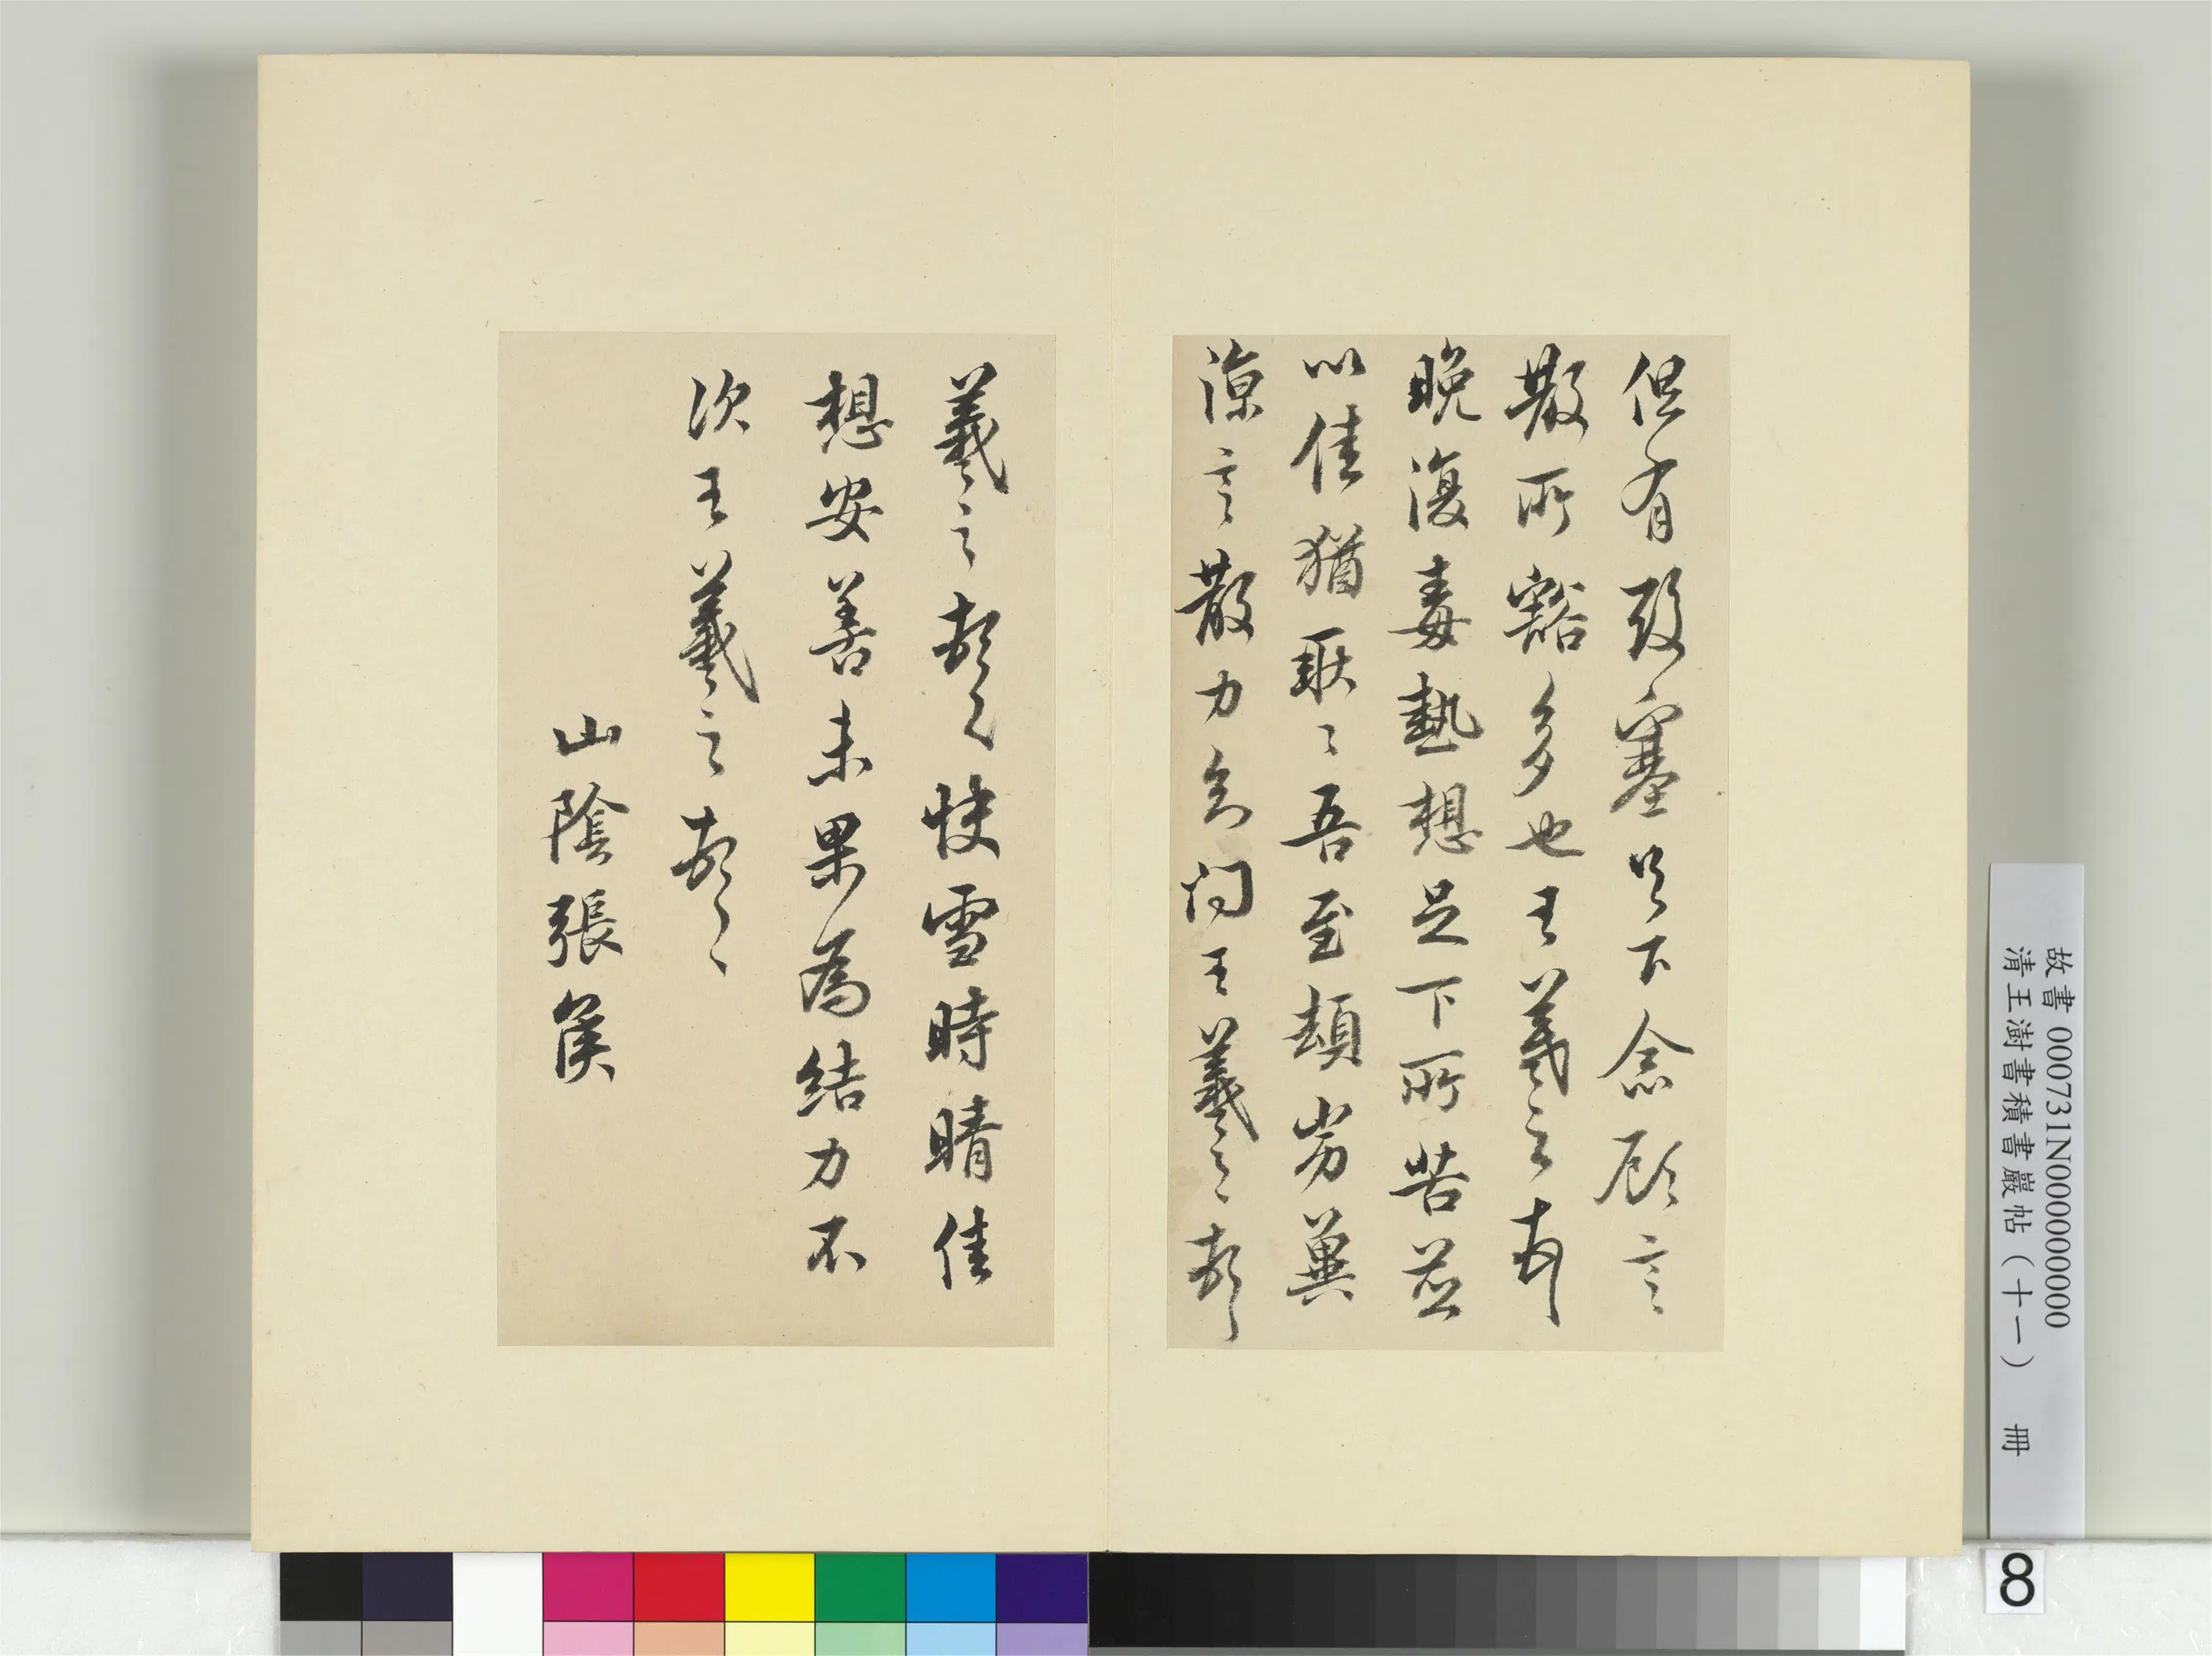 但有致塞足下念顧言
散所豁多也王羲之頓首
晚復毒熱想足下所苦並
以佳猶耿〻吾至頓劣冀
涼言散力知問王羲之頓首
羲之頓首快雪時晴佳
想安善未果為結力不
次王羲之頓首
山陰張侯
故書 000731N000000000
清王澍書積書巖帖(十一) 冊
8